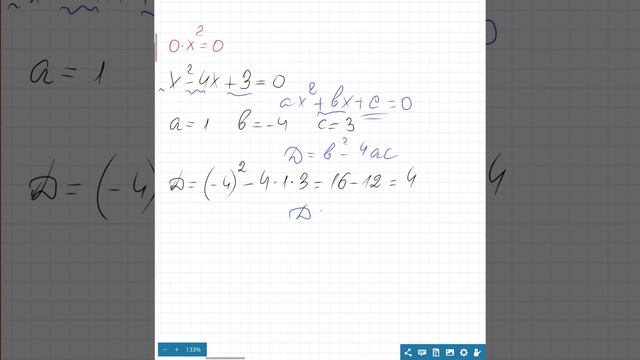 0·x²=0
x²-4x+3=0
ax²+bx+c=0
a=1 b=-4 c=3
D=b²-4ac
D=(-4)²-4·1·3=16-12=4
D
133%